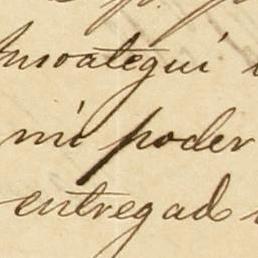 Ansoategui
mi poder
entregado